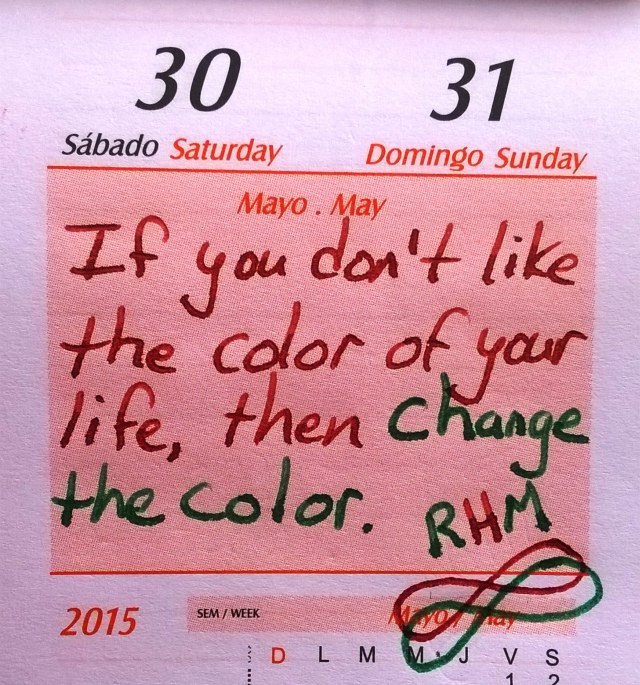 30 31
Sábado Saturday Domingo Sunday
Mayo . May
If you don't like
the color of your
life, then change
the color. RHM
2015 SEM / WEEK Mayo / May
D L M M J V S
1 2